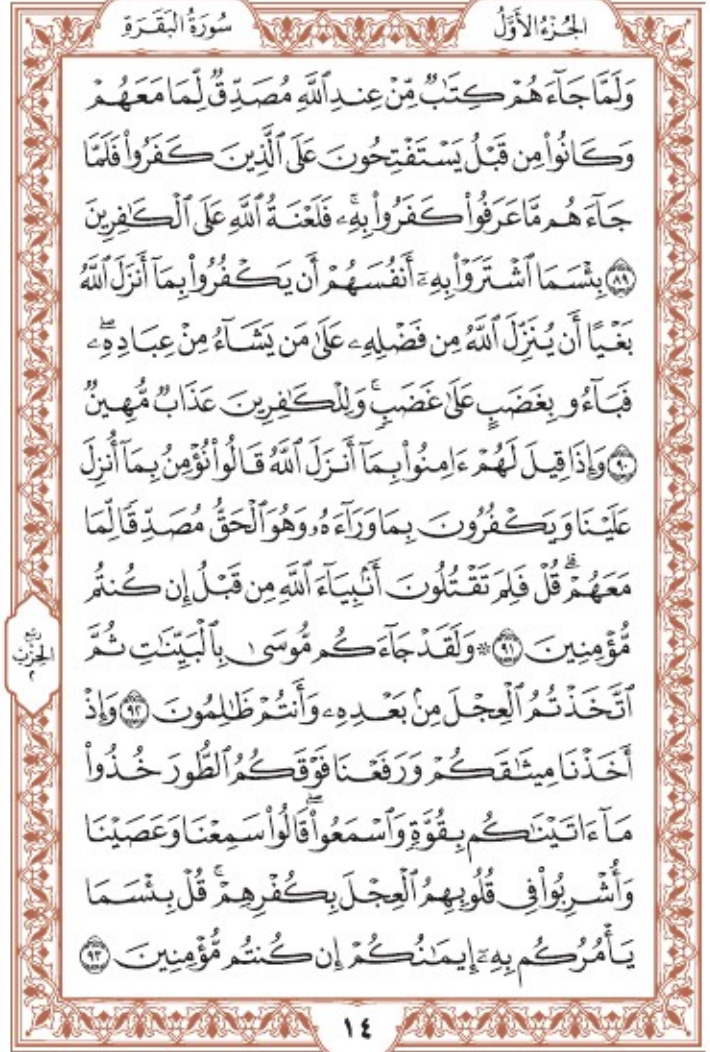 الجُزْءُ الأَوَّلُ
سُورَةُ الْبَقَرَةِ
وَلَمَّا جَآءَهُمْ كِتَٰبٌ مِّنْ عِندِ ٱللَّهِ مُصَدِّقٌ لِّمَا مَعَهُمْ
وَكَانُوا۟ مِن قَبْلُ يَسْتَفْتِحُونَ عَلَى ٱلَّذِينَ كَفَرُوا۟ فَلَمَّا
جَآءَهُم مَّا عَرَفُوا۟ كَفَرُوا۟ بِهِۦۚ فَلَعْنَةُ ٱللَّهِ عَلَى ٱلْكَٰفِرِينَ
٨٩ بِئْسَمَا ٱشْتَرَوْا۟ بِهِۦٓ أَنفُسَهُمْ أَن يَكْفُرُوا۟ بِمَآ أَنزَلَ ٱللَّهُ
بَغْيًا أَن يُنَزِّلَ ٱللَّهُ مِن فَضْلِهِۦ عَلَىٰ مَن يَشَآءُ مِنْ عِبَادِهِۦۖ
فَبَآءُو بِغَضَبٍ عَلَىٰ غَضَبٍۚ وَلِلْكَٰفِرِينَ عَذَابٌ مُّهِينٌ
٩٠ وَإِذَا قِيلَ لَهُمْ ءَامِنُوا۟ بِمَآ أَنزَلَ ٱللَّهُ قَالُوا۟ نُؤْمِنُ بِمَآ أُنزِلَ
عَلَيْنَا وَيَكْفُرُونَ بِمَا وَرَآءَهُۥ وَهُوَ ٱلْحَقُّ مُصَدِّقًا لِّمَا
مَعَهُمْۗ قُلْ فَلِمَ تَقْتُلُونَ أَنۢبِيَآءَ ٱللَّهِ مِن قَبْلُ إِن كُنتُم
مُّؤْمِنِينَ ٩١ ۞ وَلَقَدْ جَآءَكُم مُّوسَىٰ بِٱلْبَيِّنَٰتِ ثُمَّ
ٱتَّخَذْتُمُ ٱلْعِجْلَ مِنۢ بَعْدِهِۦ وَأَنتُمْ ظَٰلِمُونَ ٩٢ وَإِذْ
أَخَذْنَا مِيثَٰقَكُمْ وَرَفَعْنَا فَوْقَكُمُ ٱلطُّورَ خُذُوا۟
مَآ ءَاتَيْنَٰكُم بِقُوَّةٍ وَٱسْمَعُوا۟ۖ قَالُوا۟ سَمِعْنَا وَعَصَيْنَا
وَأُشْرِبُوا۟ فِى قُلُوبِهِمُ ٱلْعِجْلَ بِكُفْرِهِمْۚ قُلْ بِئْسَمَا
يَأْمُرُكُم بِهِۦٓ إِيمَٰنُكُمْ إِن كُنتُم مُّؤْمِنِينَ ٩٣
ربع
الحزب
٢
١٤